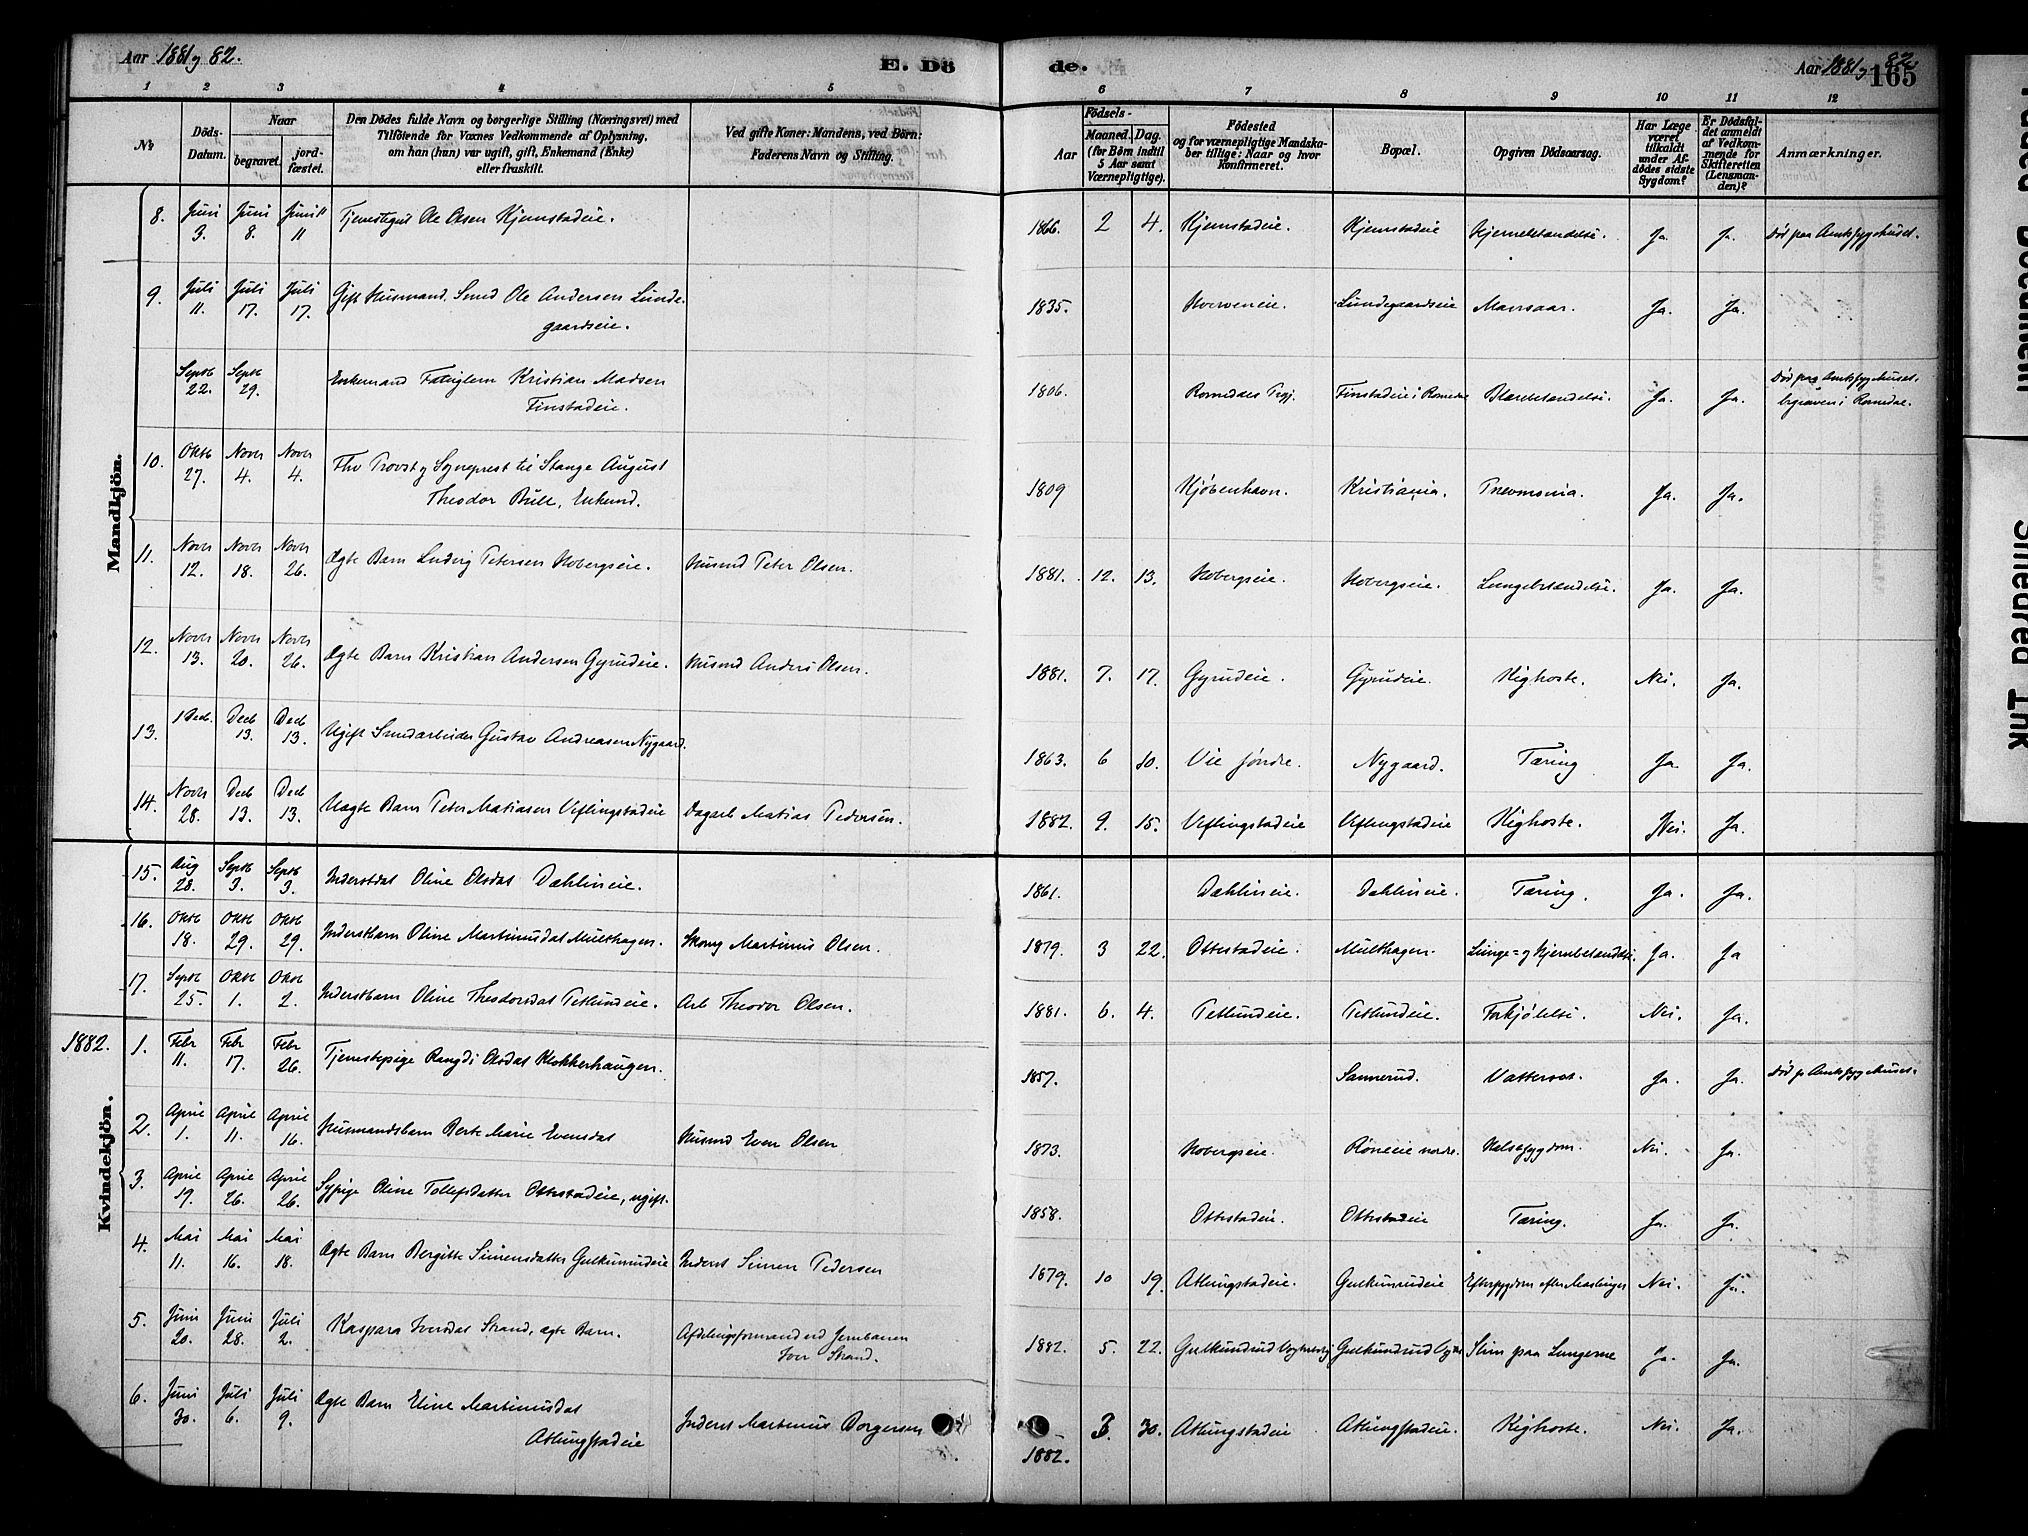 Aar 1881 og 82.
E. Dö
de.
Aar 1881 og 82
165
1 2 3 4 5 6 7 8 9 10 11 12
No
Döds-Datum.
Naar
begravet.
jord-fæstet.
Den Dödes fulde Navn og borgerlige Stilling (Næringsvei) med
Tilföiende for Voxnes Vedkommende af Oplysning,
om han (hun) var ugift, gift, Enkemand (Enke)
eller fraskilt.
Ved gifte Koner: Mandens, ved Börn:
Faderens Navn og Stilling.
Födsels-
Aar
Maaned.
Dag.
(for Börn indtil
5 Aar samt
Værnepligtige).
Födested
og for værnepligtige Mandska-
ber tillige: Naar og hvor
konfirmeret.
Bopæl.
Opgiven Dödsaarsag.
Har Læge
været
tilkaldt
under Af-
dödes sidste
Sygdom?
Er Dödsfal-
det anmeldt
af Vedkom-
mende for
Skifteretten
(Lensman-
den)?
Anmærkninger.
Mandkjön.
8. Juni 3. Juni 8. Juni 11 Tjenestegut Ole Olsen Kjemstadeie. 1866. 2 4. Kjemstadeie. Kjemstadeie Hjernebetændelse. Ja. Ja. Död paa Amtssygehuset.
9. Juli 11. Juli 17. Juli 17. Gift Husmand. Smed Ole Andersen Lunde 1835. Hverveneie. Lundegaardseie Mavesaar. Ja. Ja.
gaardseie.
Septb 22. Septb 29. Enkemand Fattiglem Kristian Madsen 1806. Romedals Prgj. Finstadeie i Romedal Blærebetændelse. Ja. Ja. Död paa Amtssygehuset.
Finstadeie. begraven i Romedal.
10. Oktb 27. Novb 4. Novb 4. Fhv Provst og Sogneprest til Stange August 1809 Kjøbenhavn. Kristiania. Pneumonia. Ja. Ja.
Theodor Bull, Enkmd.
11. Novb 12. Novb 18. Novb 26. Ægte Barn Ludvig Petersen Hobergseie. Husmd Peter Olsen. 1881. 12. 13. Hobergseie. Hobergseie. Lungebetændelse. Ja. Ja.
12. Novb 13. Novb 20. Novb 26. Ægte Barn Kristian Andersen Gyrudeie. Husmd Anders Olsen. 1881. 7. 17. Gyrudeie. Gyrudeie. Kighoste. Nei. Ja.
13. 1 Decb. Decb 13. Decb 13. Ugift Smedarbeider Gustav Andreasen Nygaard. 1863. 6 10. Vie søndre. Nygaard. Tæring Ja. Ja.
14. Novb 28. Decb 13. Decb 13. Uægte Barn Peter Matiasen Veflingstadeie Dagarb Matias Pedersen. 1882. 9. 15. Veflingstadeie Veflingstadeie Kighoste. Nei. Ja.
Kvindekjön.
15. Aug 28. Septb 3. Septb 3. Inderstdat Oline Olsdat Dæhlineie. 1861. Dæhlineie. Dæhlineie. Tæring. Ja. Ja.
16. Oktb 18. Oktb 29. Oktb 29. Inderstbarn Oline Martinusdat Multhagen. Skomg Martinius Olsen. 1879. 3 22. Ottestadeie. Multhagen. Lunge= og Hjernebetændelse. Ja. Ja
17. Septb 25. Oktb 1. Oktb 2. Inderstbarn Oline Theodorsdat Tetlundeie. Arb Theodor Olsen. 1881. 6. 4. Tetlundeie. Tetlundeie. Forkjølelse. Nei. Ja.
1882. 1. Febr 11. Febr 17. Febr 26. Tjenestepige Rangdi Olsdat Klokkerhaugen. 1857. Sannerud. Vattersot. Ja. Ja. Död p. Amtssygehuset.
2. April 1. April 11. April 16. Husmandsbarn Berte Marie Evensdat Husmd Even Olsen 1873. Hobergseie. Röneeie nordre. Halssygdom. Nei. Ja.
3. April 19. April 26. April 26. Sypige Oline Tollefsdatter Ottestadeie, ugift. 1858. Ottestadeie. Ottestadeie Tæring. Ja. Ja.
4. Mai 11. Mai 16. Mai 18. Ægte Barn Bergitte Simensdatter Gulkunrudeie Inderst Simen Pedersen 1879. 10 19. Atlungstadeie. Gulkunrudeie Eftersygdom efter Meslinger Nei. Ja.
5. Juni 20. Juni 28. Juli 2. Kaspara Iversdat Strand, ægte Barn. Afdelingsformand ved Jernbanen 1882. 5. 22. Gulkundrud Gulkundrud Slim paa Lungerne Ja. Ja.
Iver Strand.
6. Juni 30. Juli 6. Juli 9. Ægte Barn Eline Martinusdat Inderst Martinius Borgersen 3. 30. Atlungstadeie Atlungstadeie. Kighoste. Nei. Ja.
Atlungstadeie 1882.